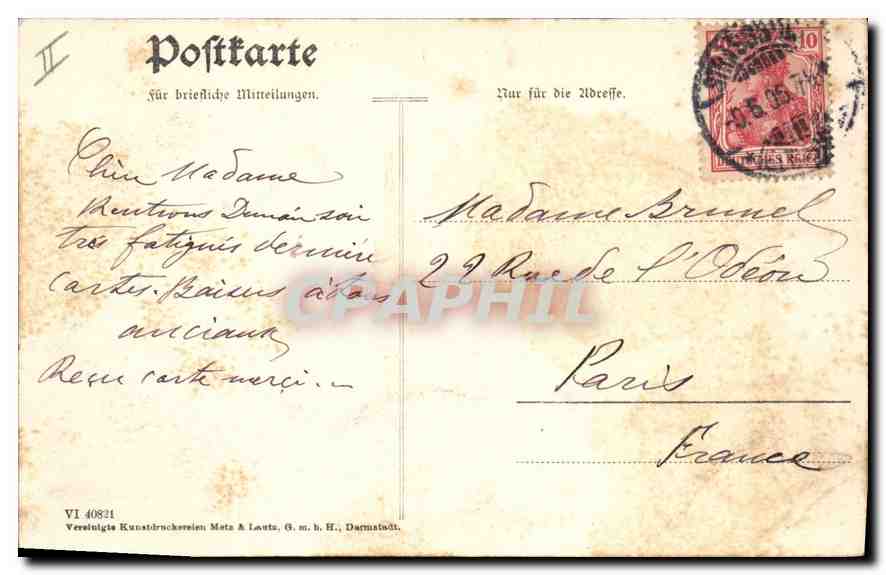 II
Postkarte
Für briefliche Mitteilungen.
Nur für die Adresse.
10
DEUTSCHES REICH
Chère Madame
Rentrons Demain soir
très fatigués dernière
cartes. Baisers à tous
anciaux
Reçu carte merci..
Madame Brunel
22 Rue de l'Odéon
Paris
France
CPAPHIL
VI 40821
Vereinigte Kunstdruckereien Metz & Lautz, G. m. b. H., Darmstadt.